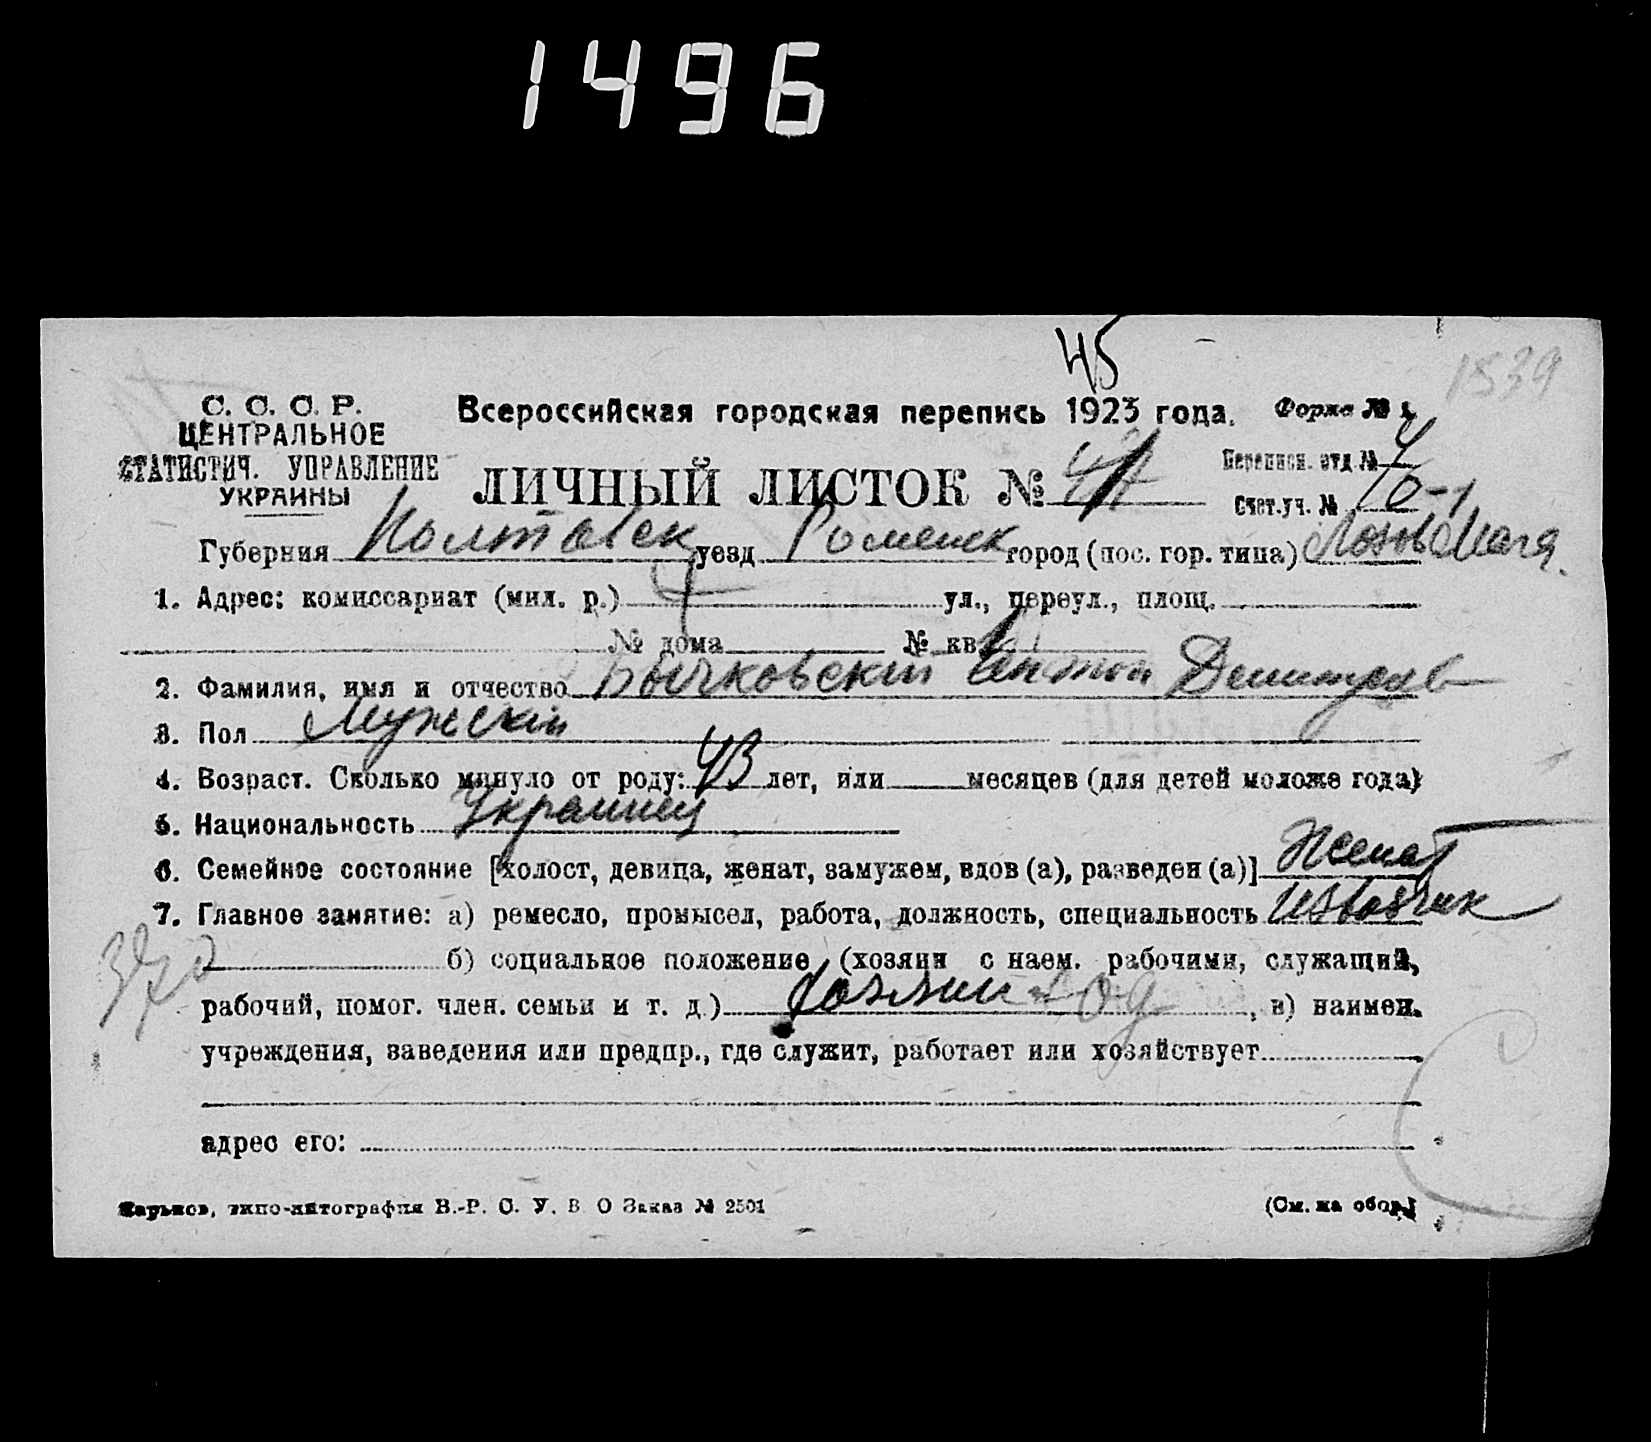 1496
45
1539
С. С. С. Р.
ЦЕНТРАЛЬНОЕ
СТАТИСТИЧ. УПРАВЛЕНИЕ
УКРАИНЫ
Всероссийская городская перепись 1923 года.
Форма № 1
ЛИЧНЫЙ ЛИСТОК №
Переписн. отд. №
Счет. уч. №
Губерния Полтавск уезд Роменск город (пос. гор. типа)
1. Адрес: комиссариат (мил. р.) ул., переул., площ.
№ дома № кв.
2. Фамилия, имя и отчество Бычковский Антон
3. Пол Мужский
4. Возраст. Сколько минуло от роду: 43 лет, или месяцев (для детей моложе года)
5. Национальность Украинец
6. Семейное состояние [холост, девица, женат, замужем, вдов (а), разведен (а)] Женат
7. Главное занятие: а) ремесло, промысел, работа, должность, специальность Извозчик
б) социальное положение (хозяин с наем. рабочими, служащий,
рабочий, помог. член. семьи и т. д.) Хозяин , в) наимен.
учреждения, заведения или предпр., где служит, работает или хозяйствует
адрес его:
Харьков, типо-литография В.-Р. С. У. В. О Заказ № 2501
(См. на обор.)